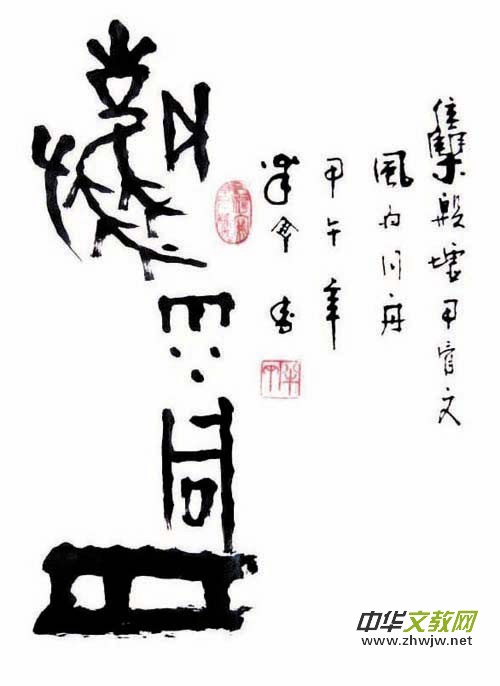 風雨同舟
集殷墟甲骨文
風雨同舟
甲午年
書
中华文教网
www.zhwjw.net